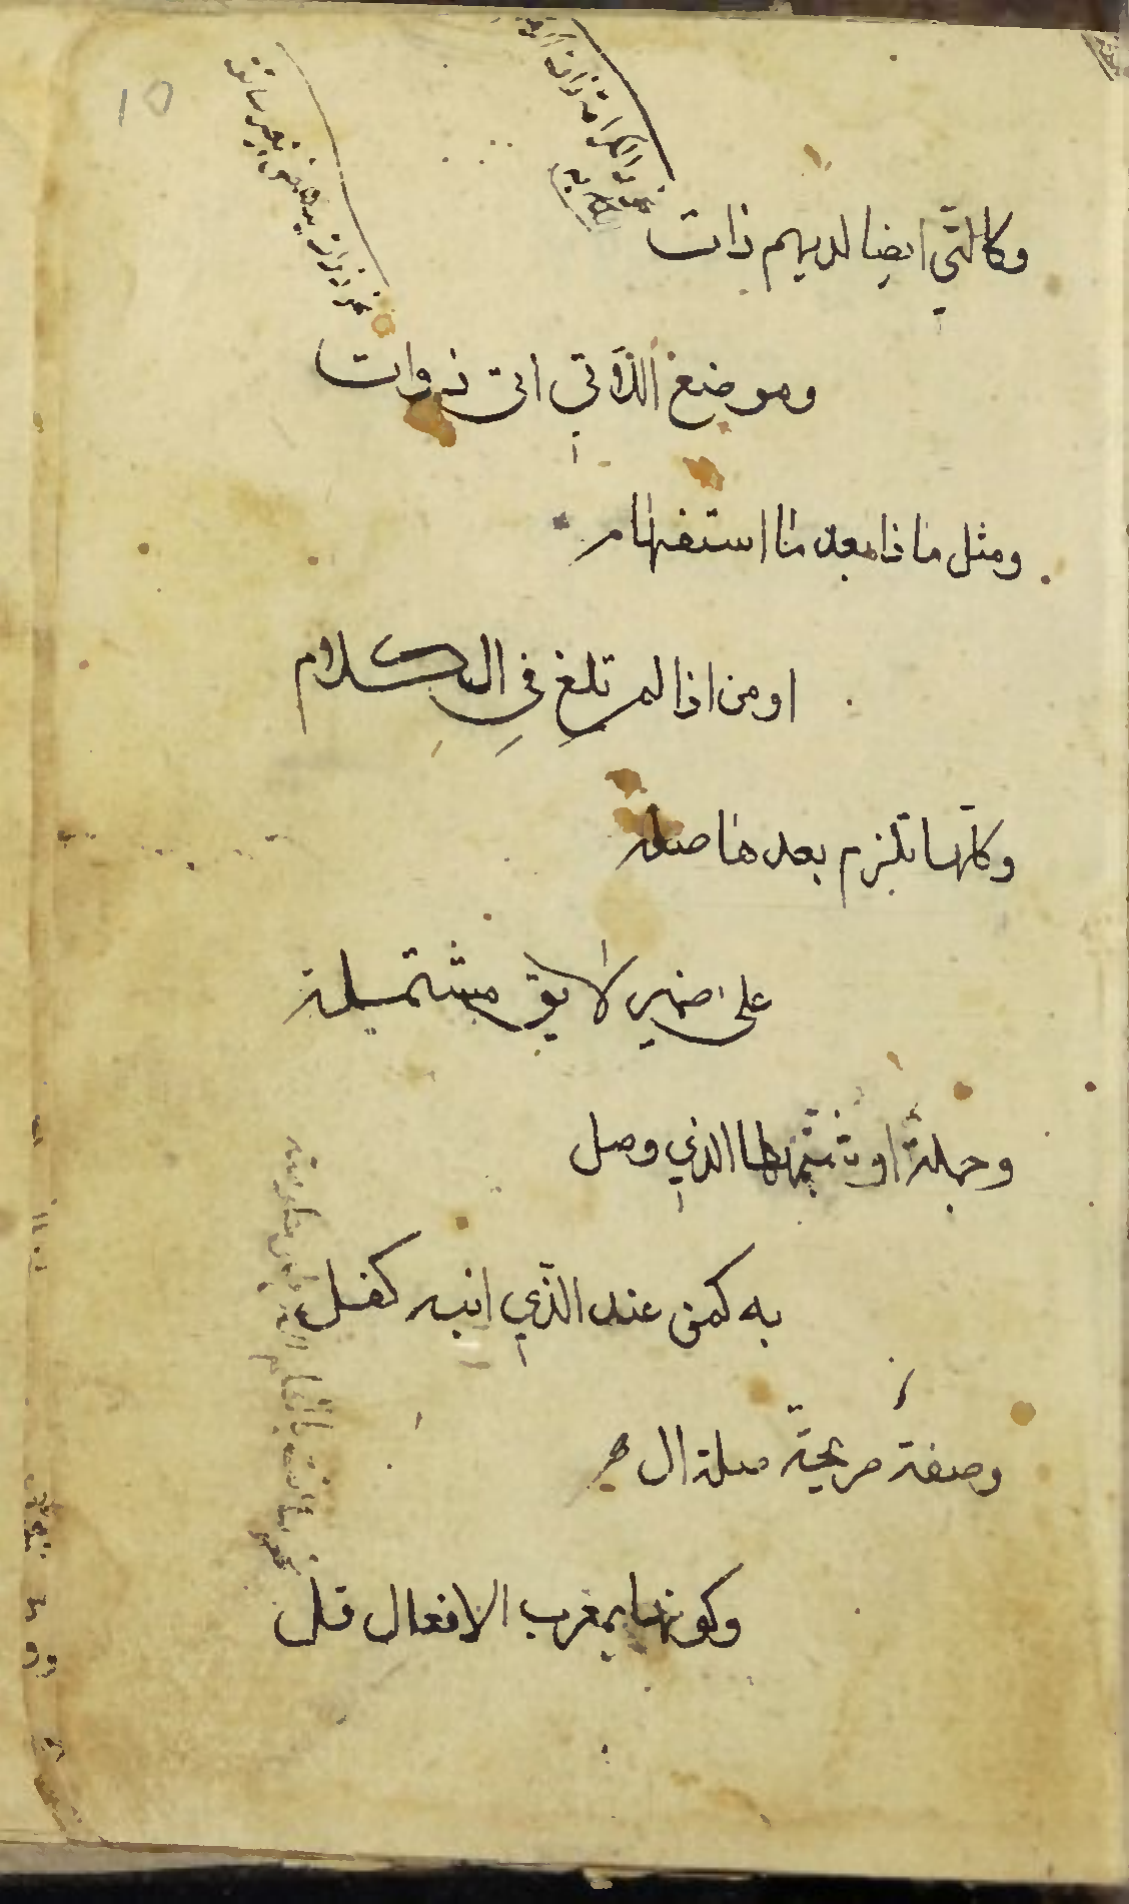 10
وكالتي ايضا لديهم ذات
وموضع اللاتي اتى ذوات
ومثل ما ذا بعد ما استفهام
او من اذا لم تلغ في الكلام
وكلها تلزم بعدها صله
على ضمير لايق مشتمله
وجملة او شبهها الذي وصل
به كمن عند الذي ابنه كفل
وصفة صريحة صلة ال
وكونها بمعرب الافعال قل